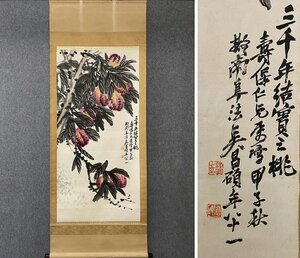 三千年結實之桃
壽保仁兄屬寫甲子秋
擬兩阜法吳昌碩年八十一